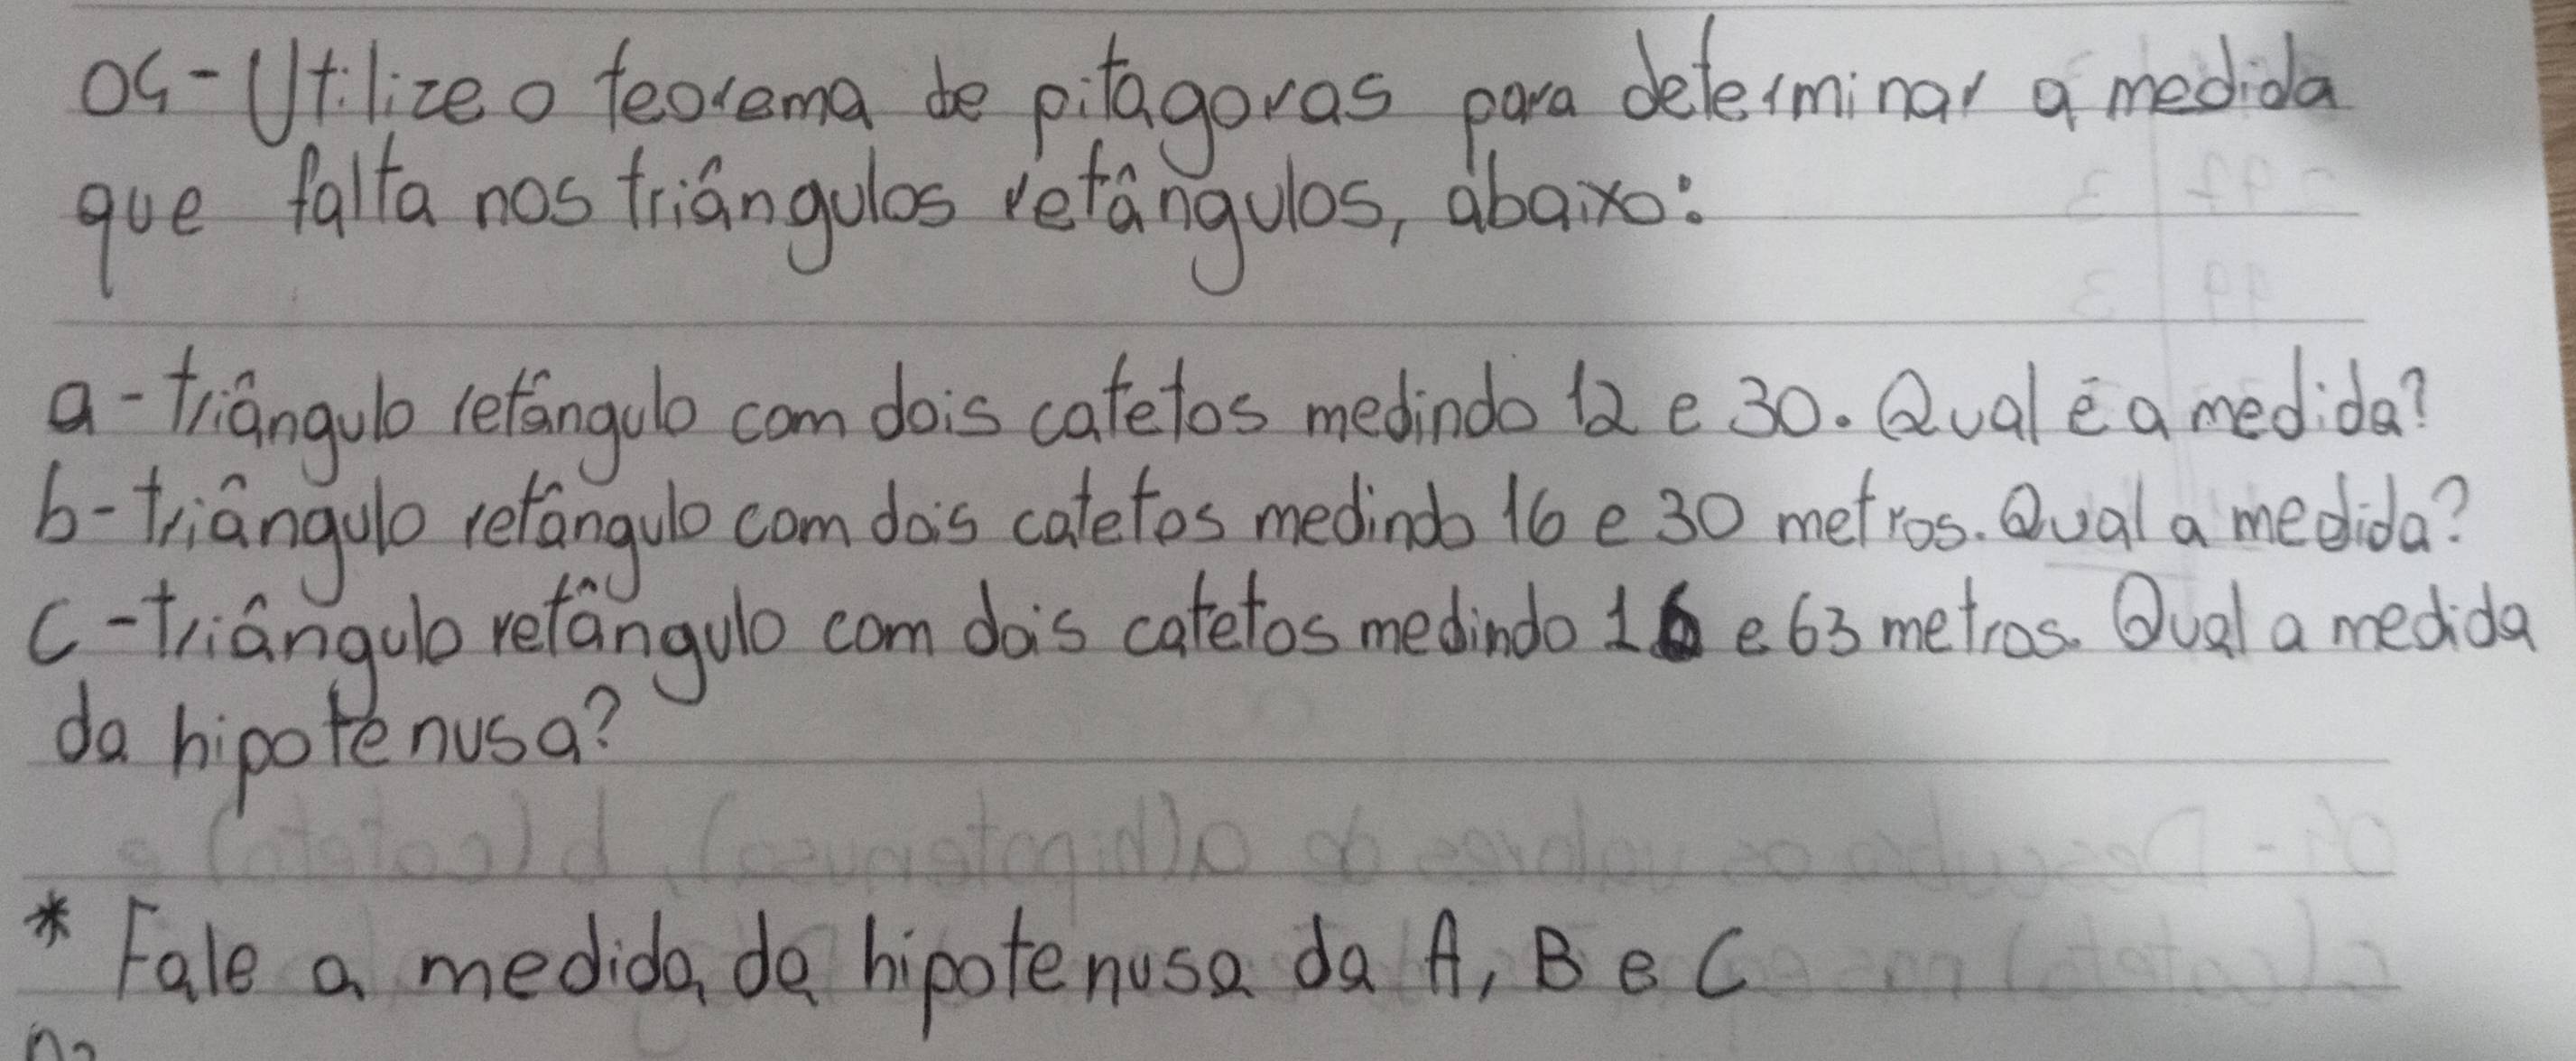 04-Utilize o teorema de pitagoras para determinar a medida
que falta nos triângulos retângulos, abaixo:
a-triângulo retângulo com dois catetos medindo 12 e 30. Qual é a medida?
b-triângulo retângulo com dois catetos medindo 16 e 30 metros. Qual a medida?
c-triângulo retângulo com dois catetos medindo 16 e 63 metros. Qual a medida
da hipotenusa?
* Fale a medida da hipotenusa da A, B e C